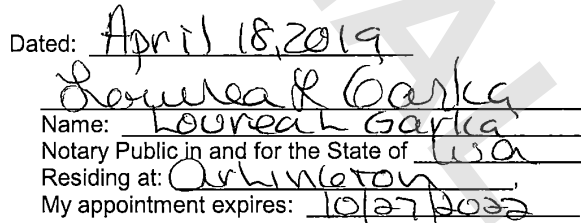 Dated: April 18, 2019
Lourea L Garka
Name: Lourea L Garka
Notary Public in and for the State of WA
Residing at: Arlington,
My appointment expires: 10/27/2022